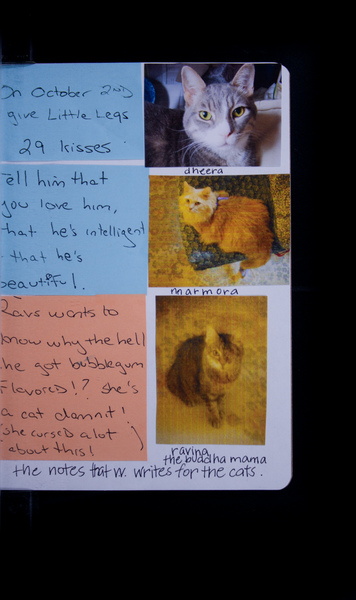 On October 2nd
give Little Legs
29 kisses
dheera
tell him that
you love him,
that he's intelligent
that he's
beautiful.
marmora
Ravs wants to
know why the hell
he got bubblegum
flavored!? she's
a cat damnt!
(she cursed alot
about this!)
ravina
the buddha mama
the notes that w. writes for the cats.